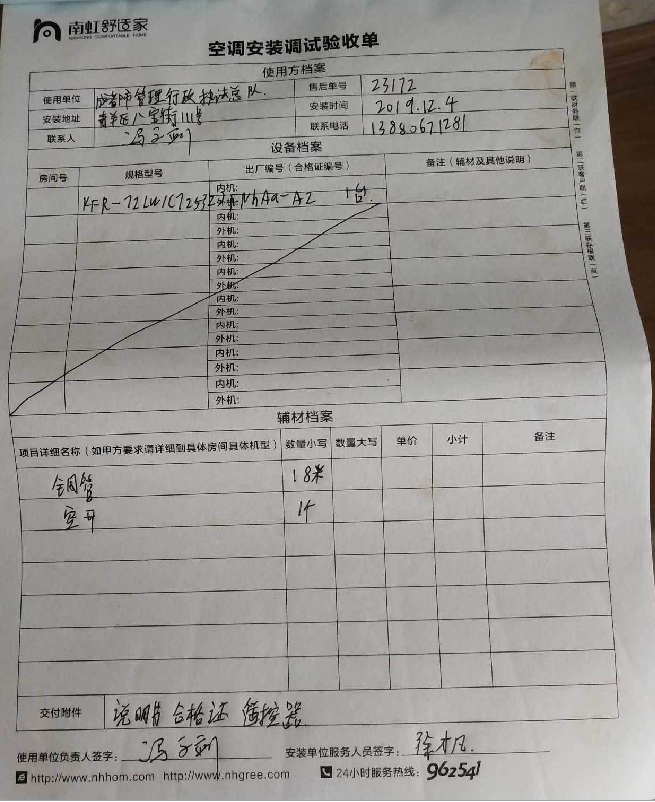 南虹舒适家
NANHONG COMFORTABLE HOME
空调安装调试验收单
使用方档案
使用单位 成都市管理行政执法总队. 售后单号 23172
安装地址 青羊区八宝街111号 安装时间 2019.12.4
联系人 联系电话 13880671281
设备档案
房间号 规格型号 出厂编号（合格证编号） 备注（辅材及其他说明）
内机:
KFR-72LW/ NhAa-A2 1台.
外机:
内机:
外机:
内机:
外机:
内机:
外机:
内机:
外机:
内机:
外机:
内机:
外机:
内机:
外机:
辅材档案
项目详细名称（如甲方要求请详细到具体房间具体机型） 数量小写 数量大写 单价 小计 备注
铜管 18米
空开 1个
交付附件 说明书 合格证 遥控器
使用单位负责人签字: 安装单位服务人员签字:
http://www.nhhom.com http://www.nhgree.com 24小时服务热线: 962541